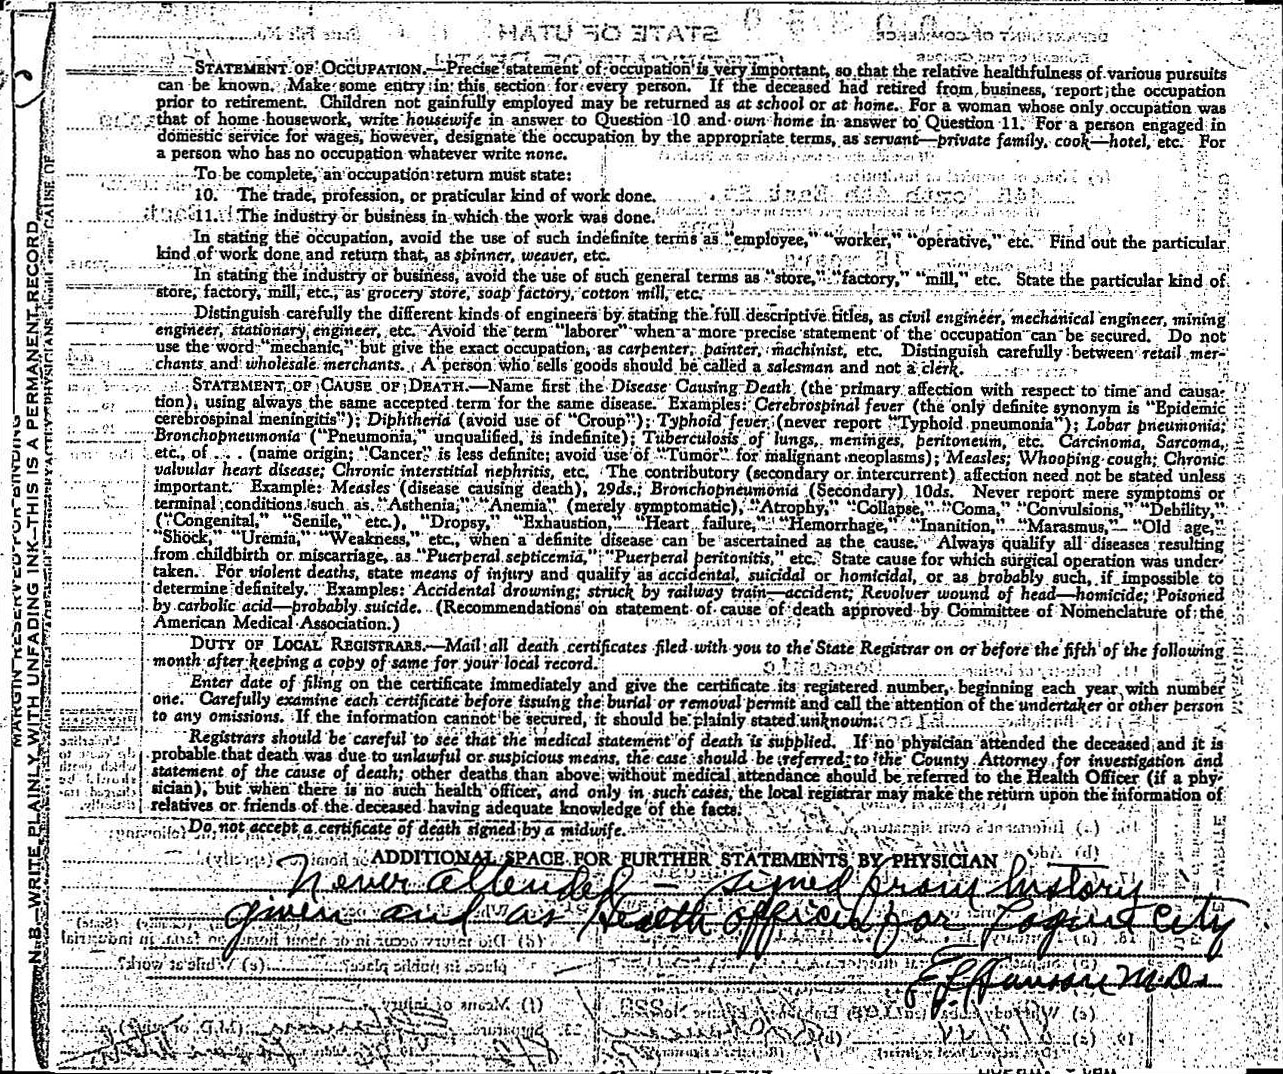 STATEMENT OF OCCUPATION.—Precise statement of occupation is very important, so that the relative healthfulness of various pursuits
can be known. Make some entry in this section for every person. If the deceased had retired from business, report the occupation
prior to retirement. Children not gainfully employed may be returned as at school or at home. For a woman whose only occupation was
that of home housework, write housewife in answer to Question 10 and own home in answer to Question 11. For a person engaged in
domestic service for wages, however, designate the occupation by the appropriate terms, as servant—private family, cook—hotel, etc. For
a person who has no occupation whatever write none.
To be complete, an occupation return must state:
10. The trade, profession, or praticular kind of work done.
11. The industry or business in which the work was done.
In stating the occupation, avoid the use of such indefinite terms as "employee," "worker," "operative," etc. Find out the particular
kind of work done and return that, as spinner, weaver, etc.
In stating the industry or business, avoid the use of such general terms as "store," "factory," "mill," etc. State the particular kind of
store, factory, mill, etc., as grocery store, soap factory, cotton mill, etc.
Distinguish carefully the different kinds of engineers by stating the full descriptive titles, as civil engineer, mechanical engineer, mining
engineer, stationary engineer, etc. Avoid the term "laborer" when a more precise statement of the occupation can be secured. Do not
use the word "mechanic," but give the exact occupation, as carpenter, painter, machinist, etc. Distinguish carefully between retail mer-
chants and wholesale merchants. A person who sells goods should be called a salesman and not a clerk.
STATEMENT OF CAUSE OF DEATH.—Name first the Disease Causing Death (the primary affection with respect to time and causa-
tion), using always the same accepted term for the same disease. Examples: Cerebrospinal fever (the only definite synonym is "Epidemic
cerebrospinal meningitis"); Diphtheria (avoid use of "Croup"); Typhoid fever (never report "Typhoid pneumonia"); Lobar pneumonia;
Bronchopneumonia ("Pneumonia," unqualified, is indefinite); Tuberculosis of lungs, meninges, peritoneum, etc. Carcinoma, Sarcoma,
etc., of . . . (name origin; "Cancer" is less definite; avoid use of "Tumor" for malignant neoplasms); Measles; Whooping cough; Chronic
valvular heart disease; Chronic interstitial nephritis, etc. The contributory (secondary or intercurrent) affection need not be stated unless
important. Example: Measles (disease causing death), 29ds.; Bronchopneumonia (Secondary) 10ds. Never report mere symptoms or
terminal conditions such as "Asthenia," "Anemia" (merely symptomatic), "Atrophy," "Collapse," "Coma," "Convulsions," "Debility,"
("Congenital," "Senile," etc.), "Dropsy," "Exhaustion," "Heart failure," "Hemorrhage," "Inanition," "Marasmus," "Old age,"
"Shock," "Uremia," "Weakness," etc., when a definite disease can be ascertained as the cause. Always qualify all diseases resulting
from childbirth or miscarriage, as "Puerperal septicemia," "Puerperal peritonitis," etc. State cause for which surgical operation was under-
taken. For violent deaths, state means of injury and qualify as accidental, suicidal or homicidal, or as probably such, if impossible to
determine definitely. Examples: Accidental drowning; struck by railway train—accident; Revolver wound of head—homicide; Poisoned
by carbolic acid—probably suicide. (Recommendations on statement of cause of death approved by Committee of Nomenclature of the
American Medical Association.)
DUTY OF LOCAL REGISTRARS.—Mail all death certificates filed with you to the State Registrar on or before the fifth of the following
month after keeping a copy of same for your local record.
Enter date of filing on the certificate immediately and give the certificate its registered number, beginning each year with number
one. Carefully examine each certificate before issuing the burial or removal permit and call the attention of the undertaker or other person
to any omissions. If the information cannot be secured, it should be plainly stated unknown.
Registrars should be careful to see that the medical statement of death is supplied. If no physician attended the deceased and it is
probable that death was due to unlawful or suspicious means, the case should be referred to the County Attorney for investigation and
statement of the cause of death; other deaths than above without medical attendance should be referred to the Health Officer (if a phy-
sician), but when there is no such health officer, and only in such cases, the local registrar may make the return upon the information of
relatives or friends of the deceased having adequate knowledge of the facts.
Do not accept a certificate of death signed by a midwife.
ADDITIONAL SPACE FOR FURTHER STATEMENTS BY PHYSICIAN
Never attended — signed from history
given and as Health officer for Logan City
M.D.
MARGIN RESERVED FOR BINDING
N. B.—WRITE PLAINLY, WITH UNFADING INK—THIS IS A PERMANENT RECORD